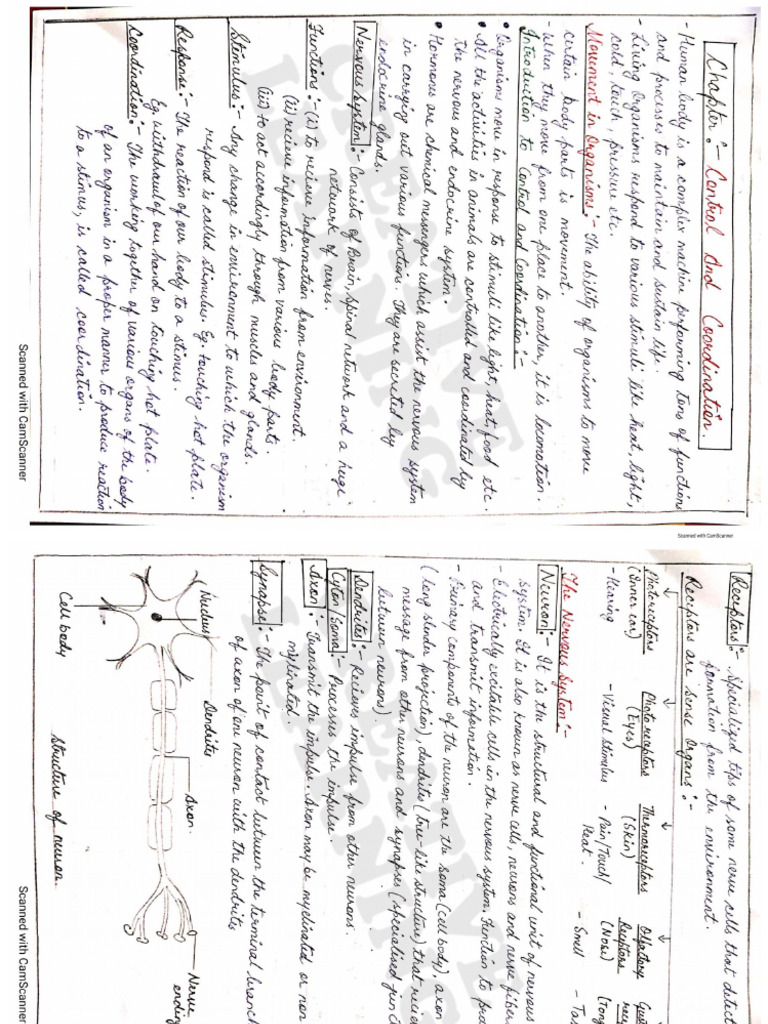 Chapter :- Control And Coordination.
- Human body is a complex machine performing tons of functions
and processes to maintain and sustain life.
- Living Organisms respond to various stimuli like heat, light,
cold, touch, pressure etc.
Movement in Organisms :- The ability of organisms to move
certain body parts is movement.
- When they move from one place to another, it is locomotion.
Introduction to Control and Coordination :-
• Organisms move in response to stimuli like light, heat, food etc.
• All the activities in animals are controlled and coordinated by
the nervous and endocrine system.
• Hormones are chemical mesengers which assist the nervous system
in carrying out various functions. They are secreted by
endocrine glands.
Nervous System :- Consists of Brain, Spinal network and a huge
network of nerves.
Functions :- (i) to recieve information from environment.
(ii) recieve information from various body parts.
(iii) to act accordingly through muscles and glands.
Stimulus :- Any change in environment to which the organism
respond is called stimulus. Eg: touching hot plate.
Response :- The reaction of our body to a stimus.
Eg withdrawl of our hand on touching hot plate.
Coordination :- The working together of various organs of the body
of an organism in a proper manner to produce reaction
to a stimus, is called coordination.
CREATIVE
LERNING
Scanned with CamScanner
Scanned with CamScanner
Receptors :- Specialized tips of some nerve cells that detect
formation from the environment.
Receptors are sense Organs :-
Photoreceptors Photoreceptors Thermoreceptors Olfactory
(Inner ear) (Eyes) (Skin) Receptors (Nose)
- Hearing - Visual stimulus - Pain/Touch/ - Smell
Heat.
The Nervous System :-
Neuron :- It is the structural and functional unit of nervous
system. It is also known as nerve cells, neurons and nerve fiber
- Electrically excitable cells in the nervous system. Function to
and transmit information.
- Primary components of the neuron are the soma (cell body), axon
(long slender projection), dendrite (tree-like structure) that
message from other neurons and synapses (specialised
between neurons).
Dendrites :- Recieves impulse from other neurons.
Cyton/Soma :- Processes the impulse.
Axon :- Transmit the impulse. Axon may be myelinated or non
mylinated.
Synapse :- The point of contact between the terminal branch
of axon of one neuron with the dendrites
Nucleus
Dendrites
Axon.
Nerve
ending
Cell body
Structure of neuron.
CREATIVE
LERNING
Scanned with CamScanner